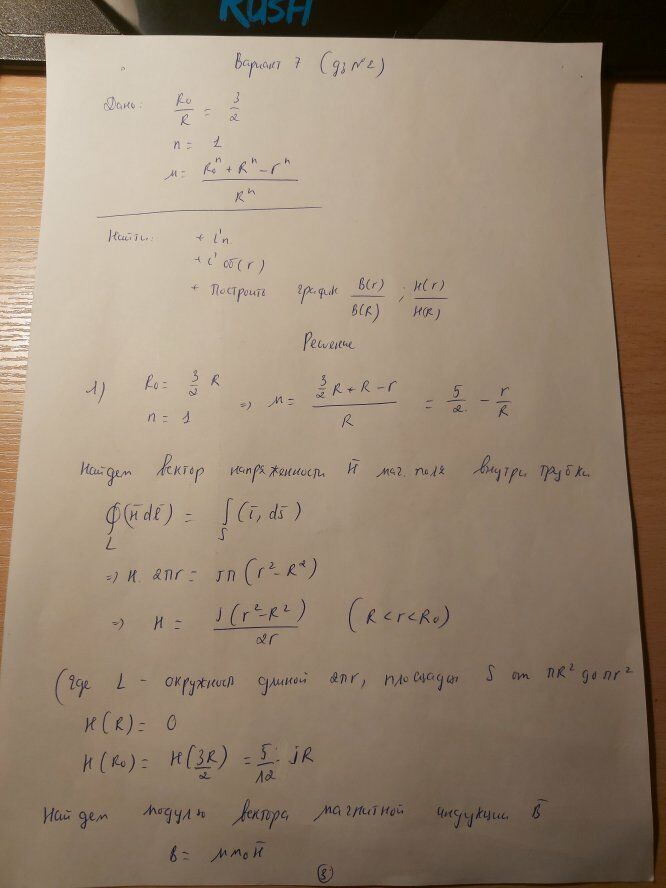 RUSH
Вариант 7 (дз №2)
Дано: R₀/R = 3/2
n = 1
μ = (R₀ⁿ + Rⁿ - rⁿ)/Rⁿ
Найти: + i'п
+ i' об(r)
+ Построить график B(r)/B(R) ; H(r)/H(R)
Решение
1) R₀ = 3/2 R
n = 1 => μ = (3/2 R + R - r)/R = 5/2 - r/R
Найдем вектор напряженности H̄ маг. поля внутри трубки
∮_L (H̄ dl̄) = ∫_S (j̄, ds̄)
=> H · 2πr = jπ(r² - R²)
=> H = j(r² - R²)/2r (R < r < R₀)
(Где L - окружность длиной 2πr, площадью S от πR² до πr²
H(R) = 0
H(R₀) = H(3R/2) = 5/12 · jR
Найдем модулю вектора магнитной индукции B̄
B = μμ₀H̄